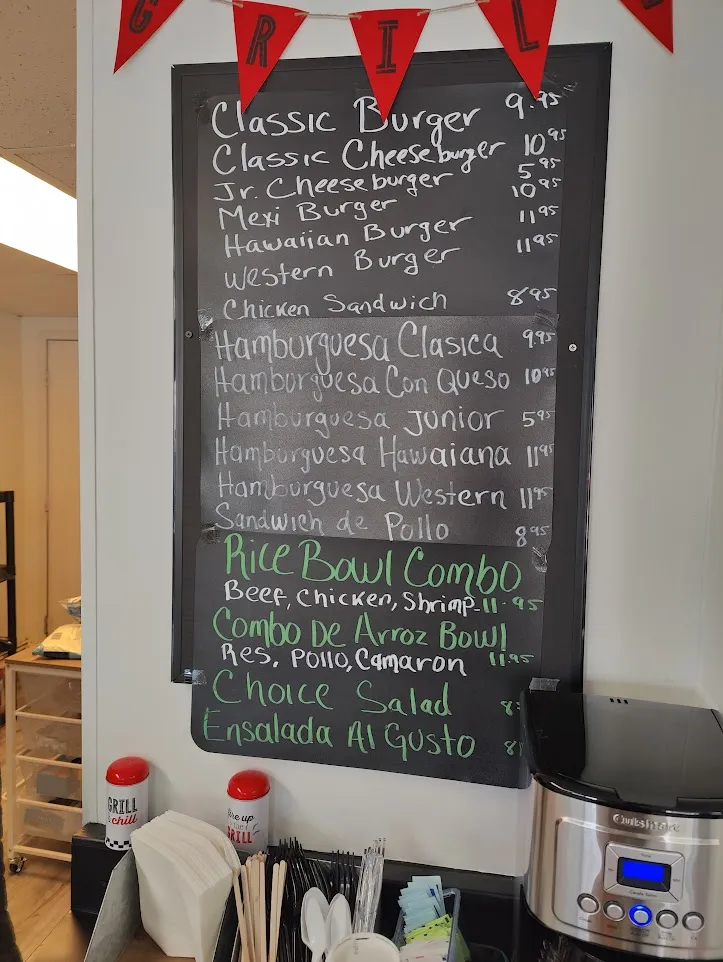 G R I L L
Classic Burger 9.95
Classic Cheeseburger 10 95
Jr. Cheeseburger 5 95
Mexi Burger 10 95
Hawaiian Burger 11 95
Western Burger 11 95
Chicken Sandwich 8 95
Hamburguesa Clasica 9 95
Hamburguesa Con Queso 10 95
Hamburguesa Junior 5 95
Hamburguesa Hawaiana 11 95
Hamburguesa Western 11 95
Sandwich de Pollo 8 95
Rice Bowl Combo
Beef, Chicken, Shrimp 11.95
Combo De Arroz Bowl
Res, Pollo, Camaron 11.95
Choice Salad 8
Ensalada Al Gusto 8
GRILL
& chill
fire up
the
GRILL
Cuisinart